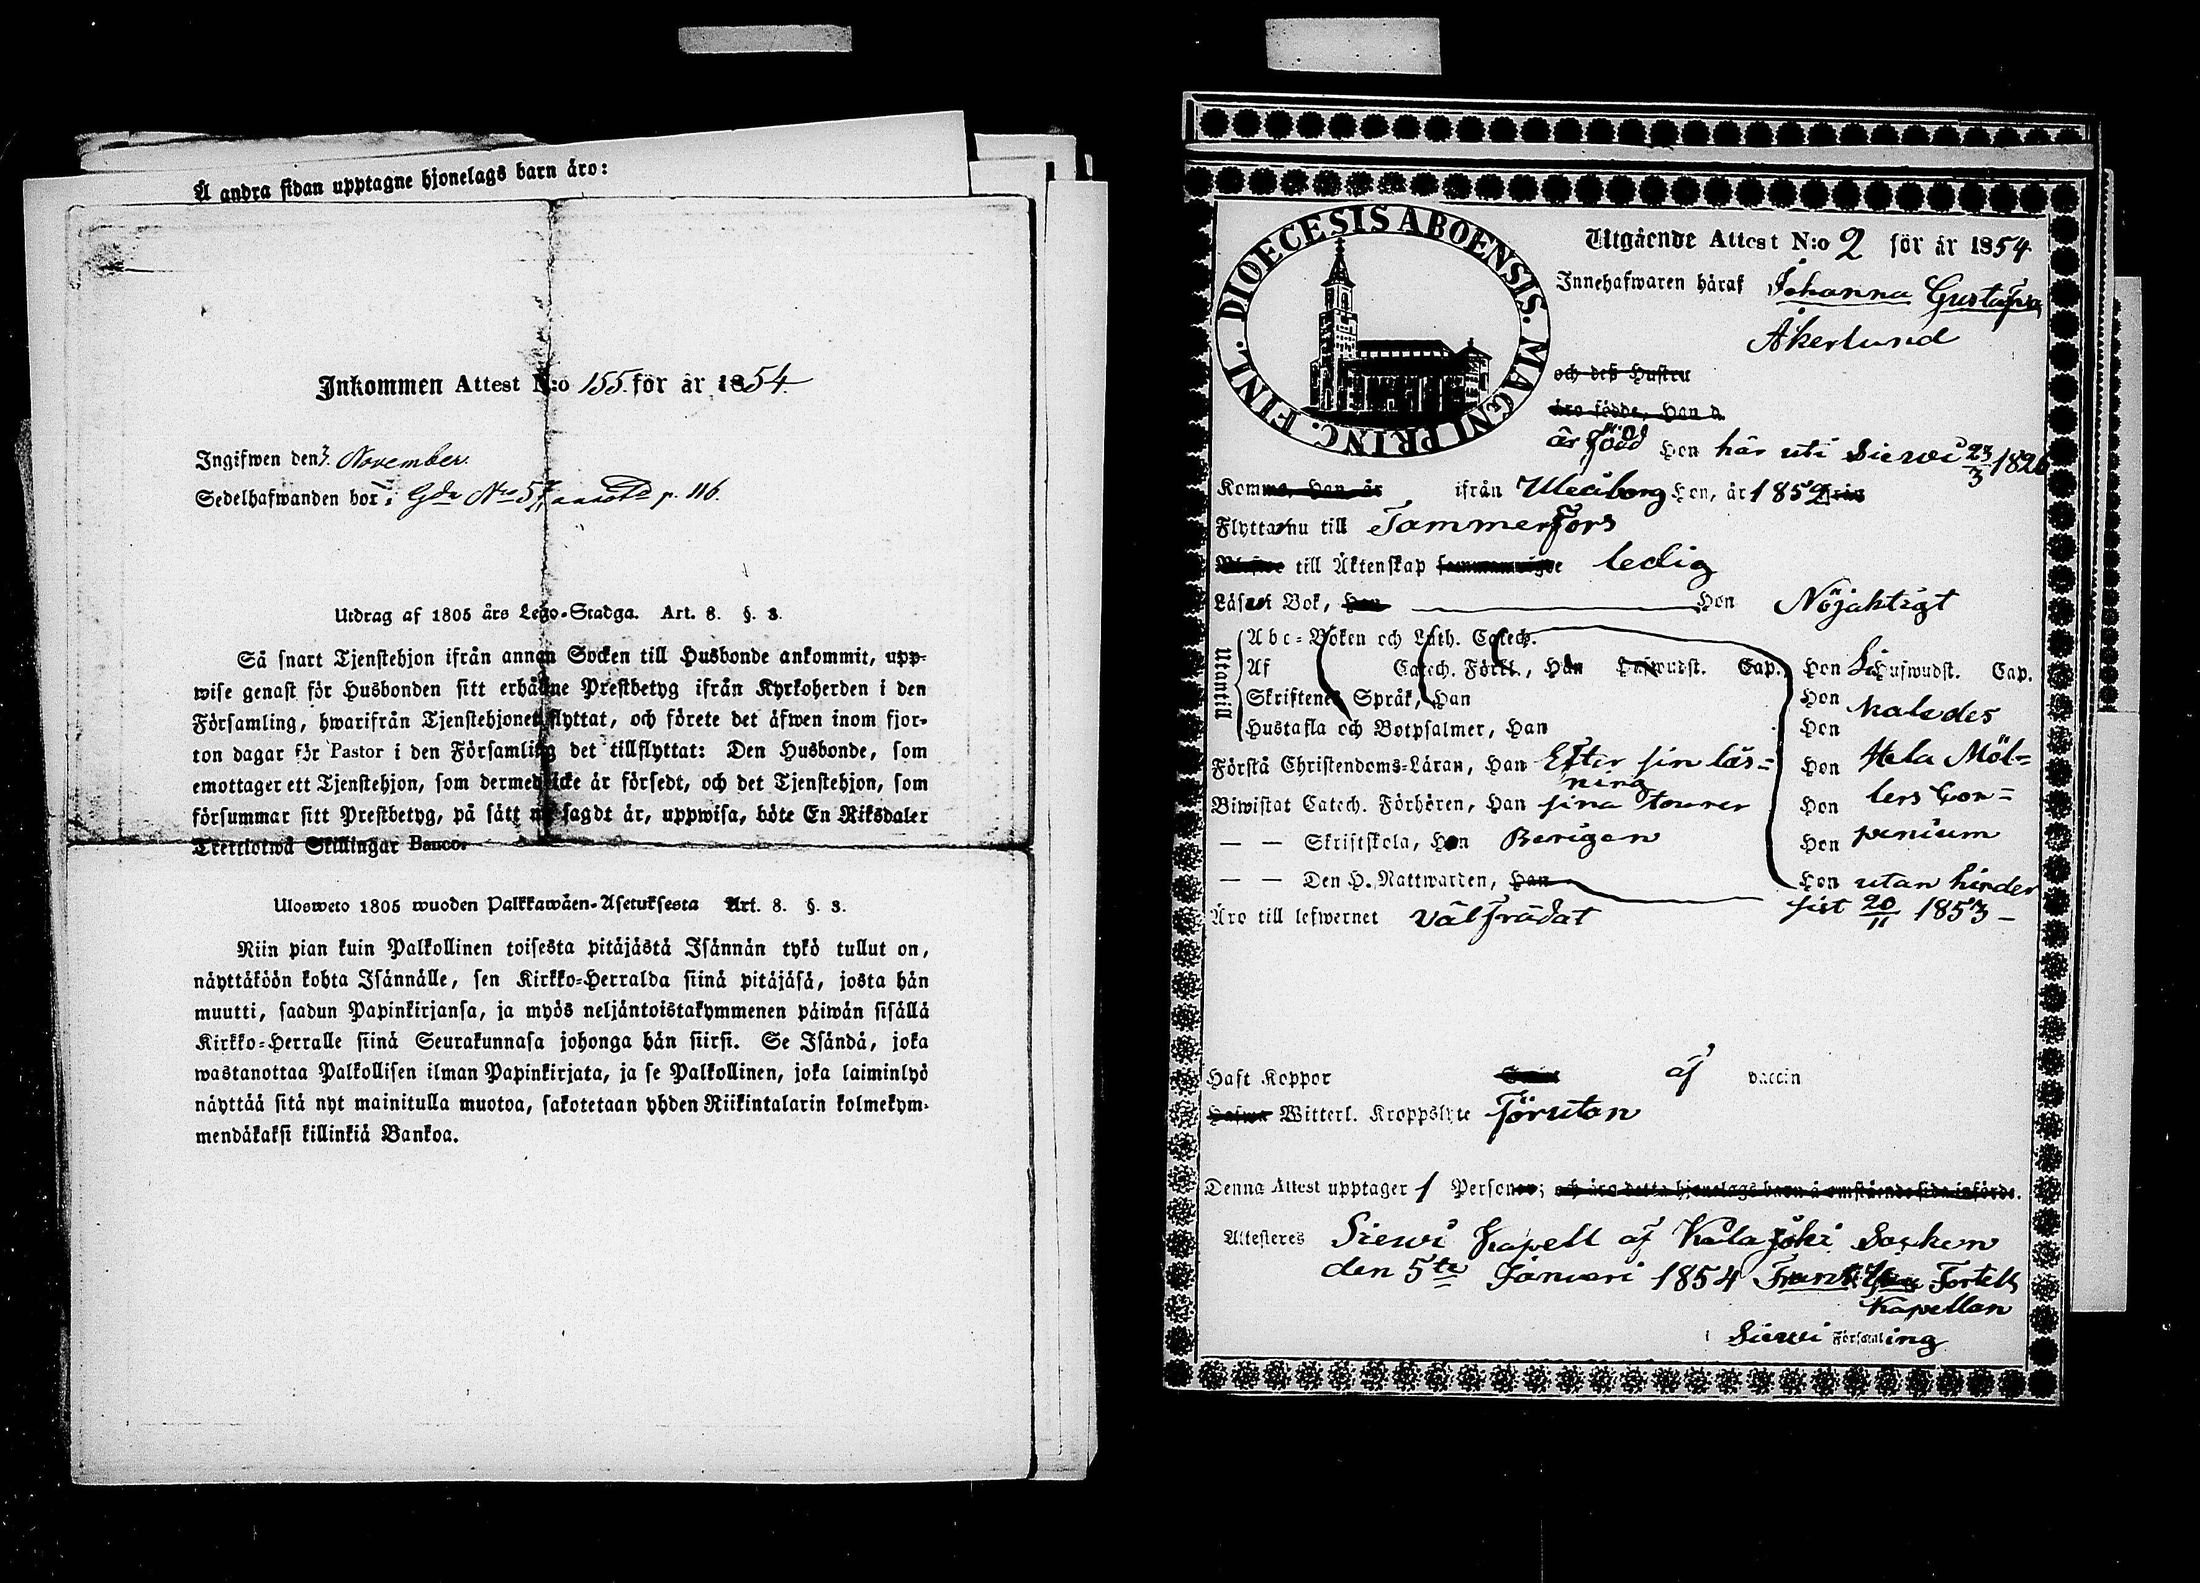 Å andra sidan upptagne hjonelags barn äro:
Inkommen Attest N:o 155. för år 1854.
Ingifwen den 3. November.
Sedelhafwanden bor i Gdn No 57, p. 116.
Utdrag af 1805 års Lego-Stadga. Art. 8. §. 3.
Så snart Tjenstehjon ifrån annan Socken till Husbonde ankommit, upp-
wise genast för Husbonden sitt erhållne Prestbetyg ifrån Kyrkoherden i den
Församling, hwarifrån Tjenstehjonet flyttat, och förete det äfwen inom fjor-
ton dagar för Pastor i den Församling det tillflyttat: Den Husbonde, som
emottager ett Tjenstehjon, som dermed icke är försedt, och det Tjenstehjon, som
försummar sitt Prestbetyg, på sätt nu sagdt är, uppwisa, böte En Riksdaler
Trettiotwå Skillingar Banco.
Ulosweto 1805 wuoden Palkkawäen-Asetuksesta Art. 8. §. 3.
Niin pian kuin Palkollinen toisesta pitäjästä Isännän tykö tullut on,
näyttäköön kohta Isännälle, sen Kirkko-Herralda siinä pitäjäsä, josta hän
muutti, saadun Papinkirjansa, ja myös neljäntoistakymmenen päiwän sisällä
Kirkko-Herralle siinä Seurakunnasa johonga hän siirsi. Se Isändä, joka
wastanottaa Palkollisen ilman Papinkirjata, ja se Palkollinen, joka laiminlyö
näyttää sitä nyt mainitulla muotoa, sakotetaan yhden Riikintalarin kolmekym-
mendäkaksi killinkiä Bankoa.
DIOECESIS ABOENSIS. MAGNI PRINC. FINL.
Utgående Attest N:o 2 för år 1854
Innehafwaren häraf Johanna Gustafva
Åkerlund
och deß Hustru
äro födde, Han d.
är född Hon här uti Siewi 23/3 1826
Komma, Han, år ifrån Uleåborg Hon, år 1852 från
Flytta nu till Tammerfors
till Äktenskap ledig
Läser i Bok, Han Hon Nöjaktigt
Utantill
Abc-Boken och Luth. Catech.
Af Catech. Förkl., Han Hufwudst. Cap. Hon Hufwudst. Cap.
Skriftenes Språk, Han Hon
Hustafla och Botpsalmer, Han Hon
Förstå Christendoms-Läran, Han Efter sin läs- Hon Hela Möl-
ning
Biwistat Catech. Förhören, Han sina tourer Hon lers Com-
— — Skriftskola, Hon Berigen Hon penium
— — Den H. Nattwarden, Han Hon utan hinder
Äro till lefwernet välfrädat sist 20/11 1853 —
Haft Koppor af vaccin
Hafwa Witterl. Kroppslyte Förutan
Denna Attest upptager 1 Personer; och äro detta hjonelags barn å omstående sida införde.
Attesteres Siewi Kapell af Kalajoki Socken
den 5te Januari 1854 Fortell
Kapellan
i Siewi Församling